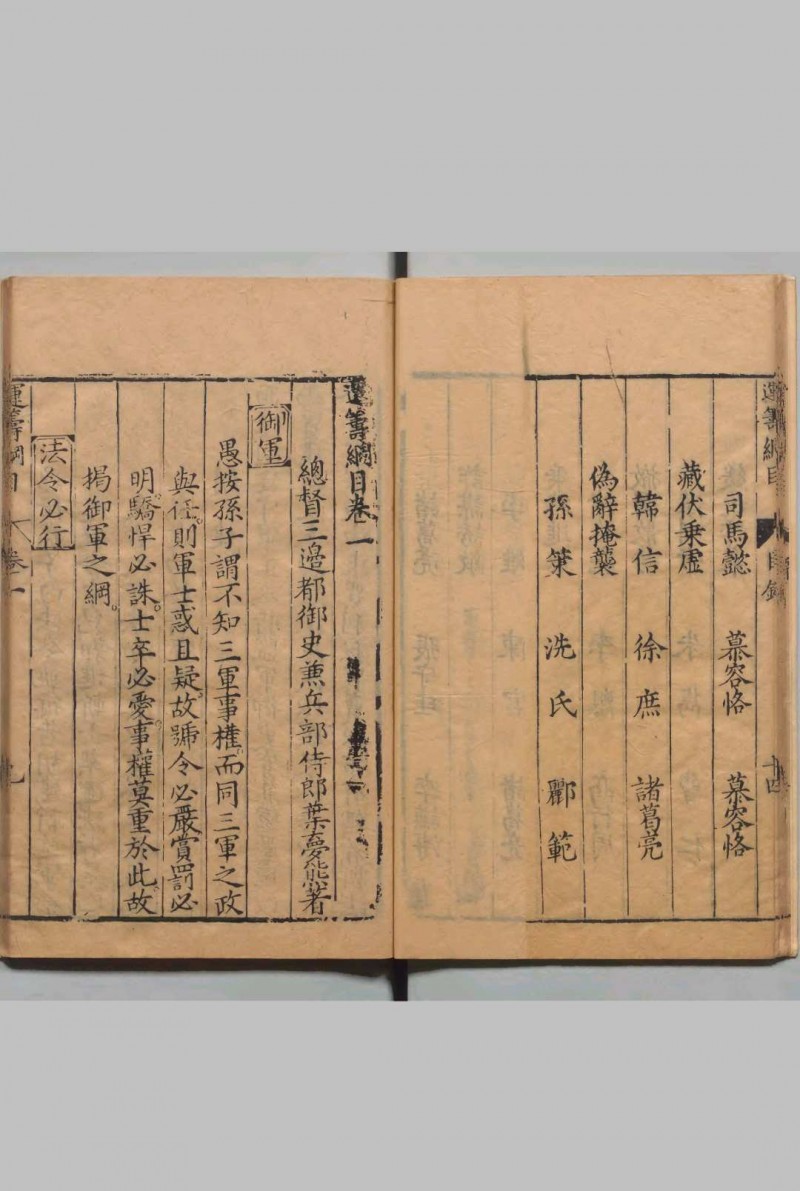 運籌綱目 目錄 十四
司馬懿 慕容恪 慕容恪
藏伏乗虛
韓信 徐庶 諸葛亮
偽辭掩襲
孫策 洗氏 酈範
運籌綱目卷一
總督三邉都御史兼兵部侍郎葉夢熊著
御軍
愚按孫子謂不知三軍事權而同三軍之政
與任則軍士惑且疑故號令必嚴賞罰必
明驕悍必誅士卒必愛事權莫重於此故
揭御軍之綱
法令必行
運籌綱目 卷一 九